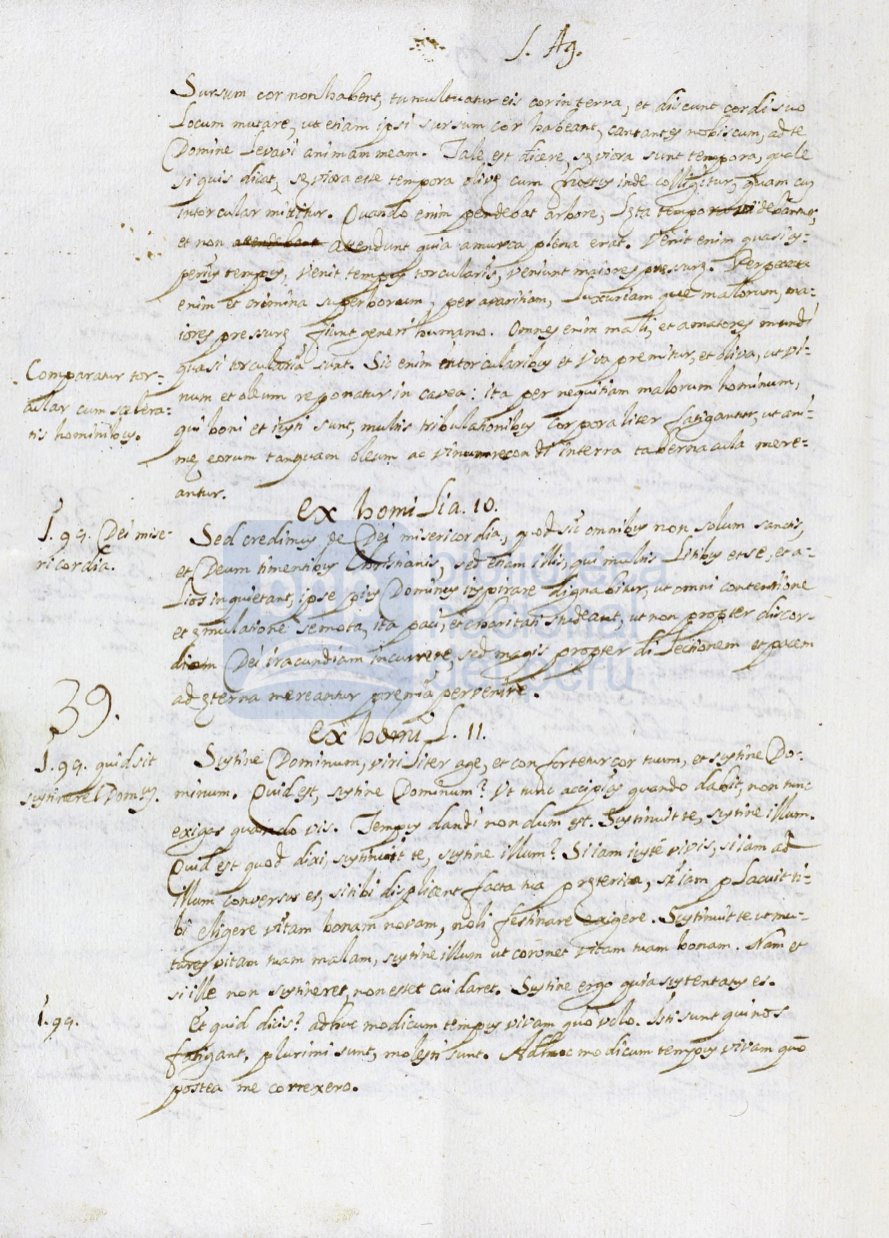 S. Ag.
Sursum cor non habent, tumultuatur eis cor in terra, et discunt cordi suo
Locum mutare, ut etiam ipsi sursum cor habeant, cantantes nobiscum, ad te
Domine Levavi animam meam. Tale est dicere, sęviora sunt tempora, quale
si quis dicat, sęviora esse tempora olivę cum fructus inde colligitur, quam cum
in torcular mittitur. Quando enim pendebat arbore, Lęta tempora videbantur,
et non attendunt quia amurca plena erat. Venit enim quasi ves-
peris tempus, venit tempus torcularis, veniunt maiores pressurę. Per
enim et crimina superborum, per avaritiam, Luxuriamque malorum, ma-
iores pressurę fiunt generi humano. Omnes enim mali, et amatores mundi
quasi torcularia sunt. Sic enim in torcularibus et Vva premitur, et oliva, ut vi-
Comparatur tor-
cular cum scelera-
tis hominibus.
num et oleum reponatur in cavea: ita per nequitiam malorum hominum,
qui boni et iusti sunt, multis tribulationibus corporaliter fatigantur, ut ani-
mę eorum tanquam oleum ac vinum recondi in terra tabernacula mere-
antur.
ex homilia. 10.
S. 99. Dei mise-
ricordia.
Sed credimus de Dei misericordia, quod sic omnibus non solum sanctis,
et Deum timentibus Christianis, sed etiam illis, qui multis Litibus et se, et a-
Lios inquietant, ipse pius Dominus inspirare dignabitur, ut omni contentione
et ęmulatione semota, ita paci, et charitati studeant, ut non propter discor-
diam Dei iracundiam incurrere, sed magis propter diLectionem et pacem
ad ęterna mereantur premia pervenire.
39.
ex homil. 11.
S. 99. quid sit
sustinere Domus.
Sustine Dominum, viriliter age, et confortetur cor tuum, et sustine Do-
minum. Quid est, sustine Dominum? Ut tunc accipias quando dabit, non tunc
exigas quando vis. Tempus dandi nondum est. Sustinuit te, sustine illum.
Quid est quod dixi, sustinuit te, sustine illum? Si iam iuste vivis, si iam ad
illum conversus es, si tibi displicent facta tua pręterita, si iam pLacuit ti-
bi eligere vitam bonam novam, noli festinare exigere. Sustinuit te ut mu-
tares vitam tuam malam, sustine illum ut coronet vitam tuam bonam. Nam et
si ille non sustineret, non esset cui daret. Sustine ergo quia sustentatus es.
S. 99.
Et quid dicis? adhuc modicum tempus vivam quo volo. Isti sunt qui nos
fatigant, plurimi sunt, molesti sunt. Adhuc modicum tempus vivam quo
postea me correxero.
biblioteca
nacional
del perú